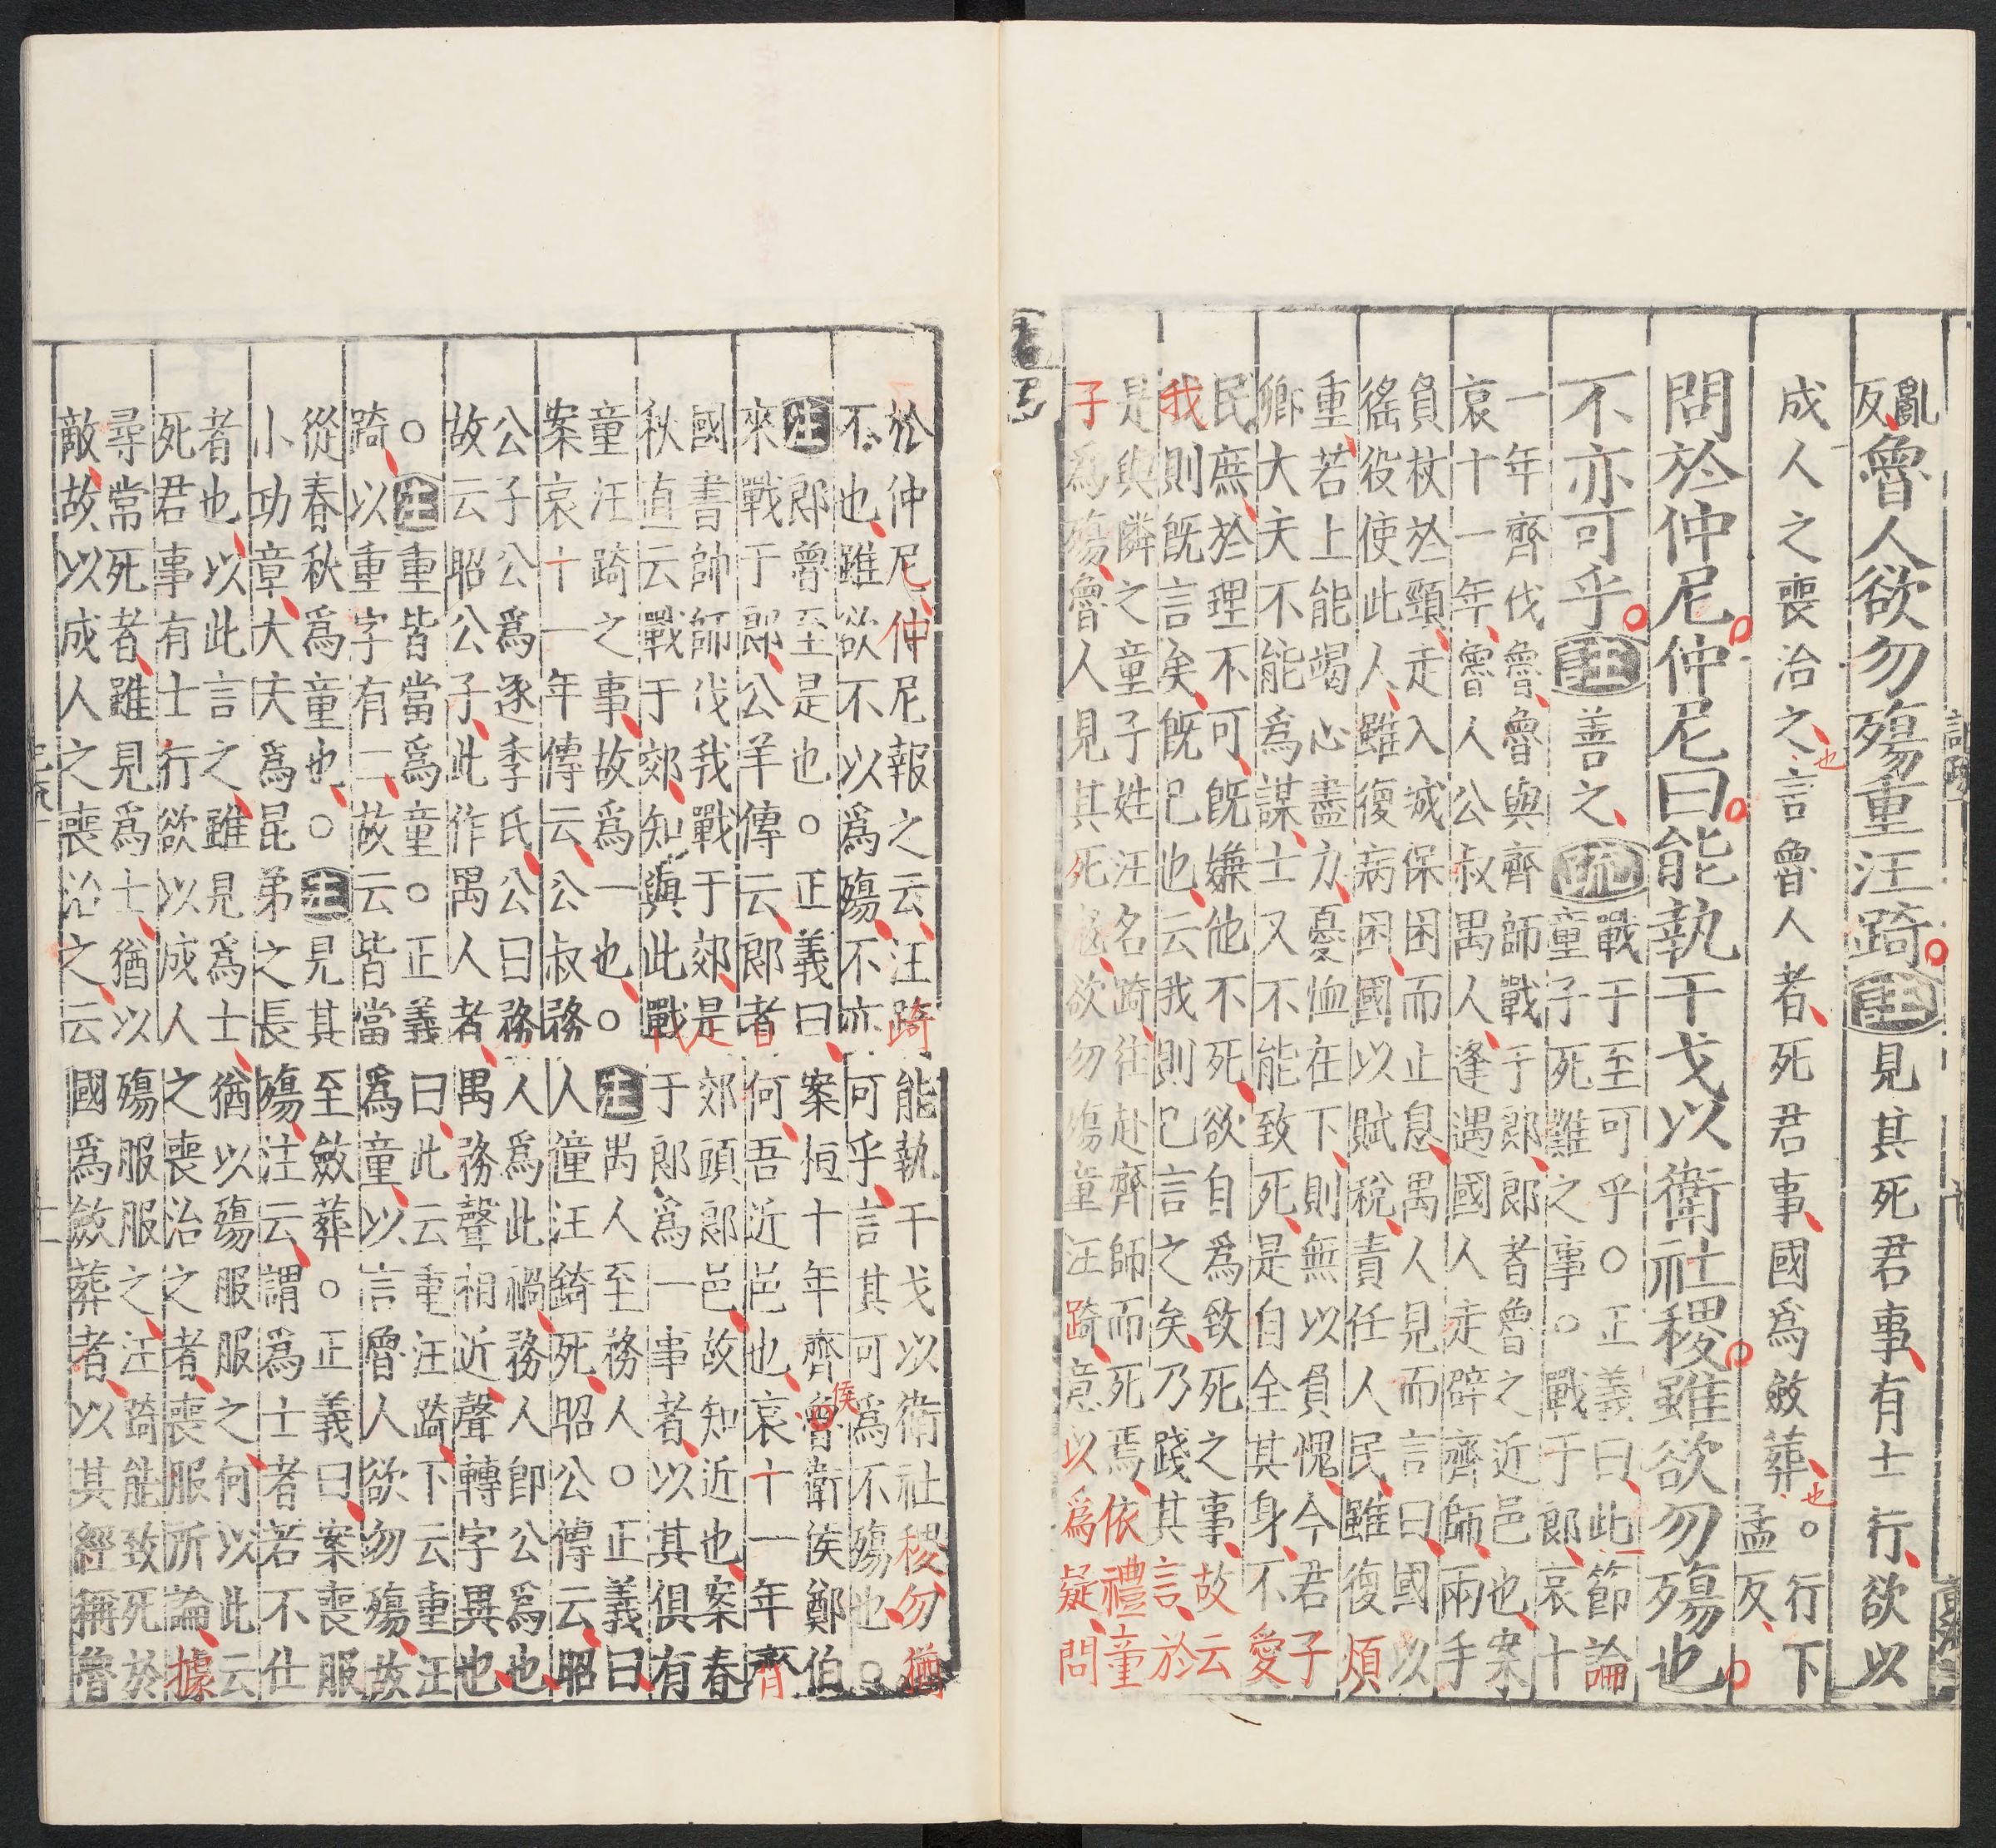 亂
反
魯人欲勿殤重汪踦注見其死君事有士行欲以
成人之喪治之也言魯人者死君事國爲斂葬也○行下
孟反
問於仲尼仲尼曰能執干戈以衛社稷雖欲勿殤也
不亦可乎注善之疏戰于至可乎○正義曰此一節論
童子死難之事○戰于郎哀十
一年齊伐魯魯與齊師戰于郎郎者魯之近邑也案
哀十一年魯人公叔禺人逢遇國人走辟齊師兩手
負杖於頸走入城保困而止息禺人見而言曰國以
徭役使此人雖復病困國以賦稅責任人民雖復煩
重若上能竭心盡力憂恤在下則無以負愧今君子
卿大夫不能爲謀士又不能致死是自全其身不愛
民庶於理不可既嫌他不死欲自爲致死之事故云
我則既言矣既已也云我則已言之矣乃踐其言於
是與隣之童子姓汪名踦往赴齊師而死焉依禮童
子爲殤魯人見其死寇欲勿殤童汪踦意以爲疑問
於仲尼仲尼報之云汪踦能執干戈以衛社稷勿猶
不也雖欲不以爲殤不亦可乎言其可爲不殤也○
注郎魯至是也○正義曰案桓十年齊魯侯衛侯鄭伯
來戰于郎公羊傳云郎者何吾近邑也哀十一年齊
國書帥師伐我戰于郊是郊頭郎邑故知近也案春
秋直云戰于郊知與此戰于郎爲一事者以其俱有
童汪踦之事故爲一也○注禺人至務人○正義曰
案哀十一年傳云公叔務人僮汪錡死昭公傳云昭
公子公爲逐季氏公曰務人爲此禍務人即公爲也
故云昭公子此作禺人者禺務聲相近聲轉字異也
○注重皆當爲童○正義曰此云重汪踦下云重汪
踦以重字有二故云皆當爲童以言魯人欲勿殤故
從春秋爲童也○注見其至斂葬○正義曰案喪服
小功章大夫爲昆弟之長殤注云謂爲士者若不仕
者也以此言之雖見爲士猶以殤服服之何以此云
死君事有士行欲以成人之喪治之者喪服所論據
尋常死者雖見爲士猶以殤服服之汪踦能致死於
敵故以成人之喪治之云國爲斂葬者以其經稱魯